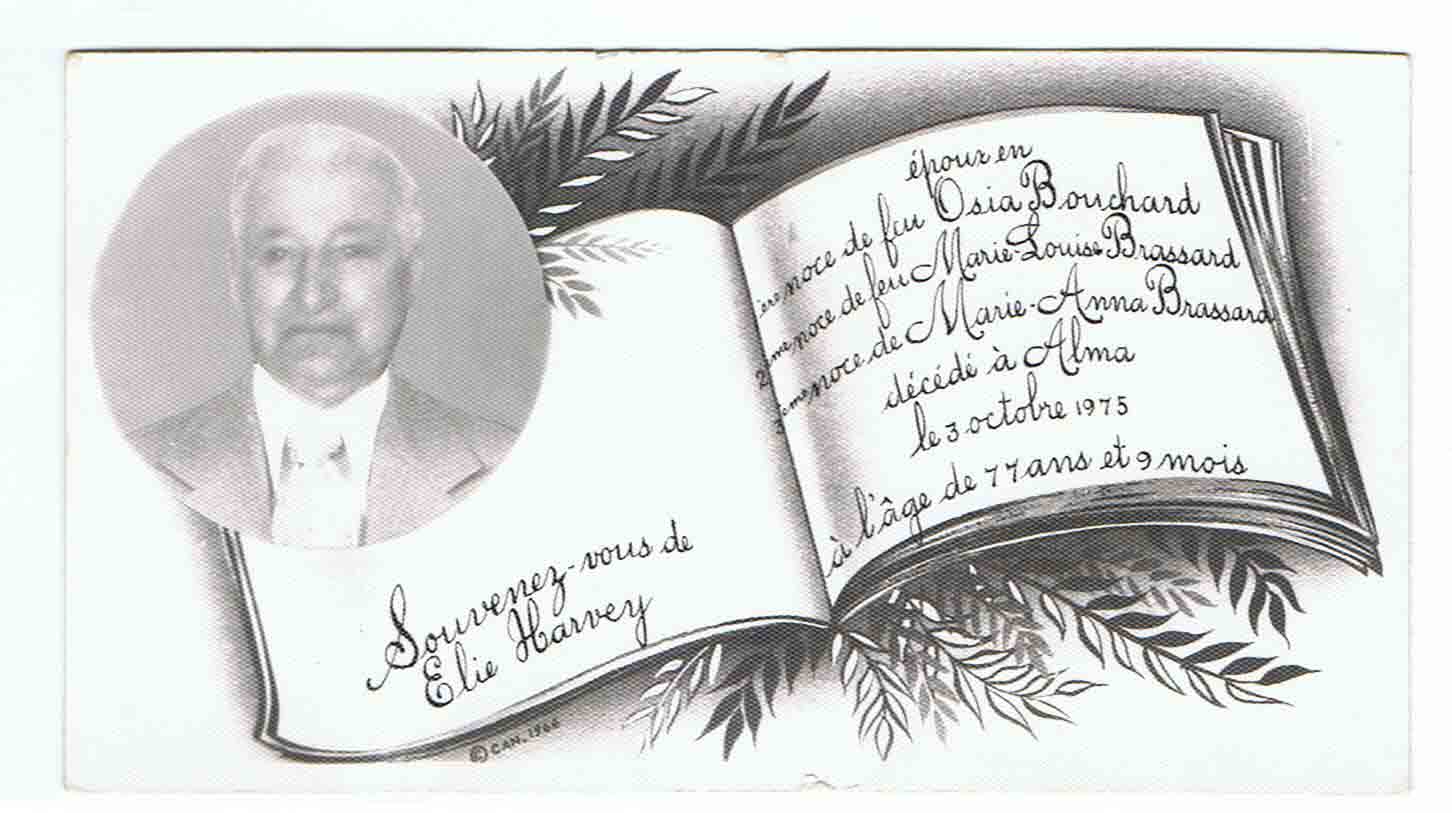 Souvenez-vous de
Elie Harvey
© CAN. 1966
époux en
1ère noce de feu Osia Bouchard
2ème noce de feu Marie-Louise Brassard
3ème noce de Marie-Anna Brassard
décédé à Alma
le 3 octobre 1975
à l'âge de 77 ans et 9 mois